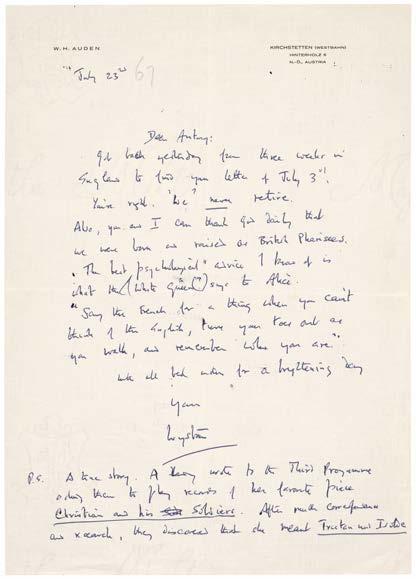 W. H. AUDEN
KIRCHSTETTEN (WESTBAHN)
HINTERHOLZ 6
N.-Ö., AUSTRIA
July 23rd 67
Dear Antony:
Got back yesterday from three weeks in
England to find your letter of July 3rd.
You're right. "We" never retire.
Also, you and I can thank God daily that
we were born and raised as British Pharisees.
The best "psychological" advice I know of is
what the (White Queen) says to Alice.
"Say the French for a thing when you can't
think of the English, turn your toes out as
you walk, and remember who you are."
for a brightening day
Yours
Wystan
P.S. A true story. A lady wrote to the Third Programme
asking them to play records of her favorite piece
Christian and his Soldiers. After much correspondence
and research, they discovered that she meant Tristan und Isolde